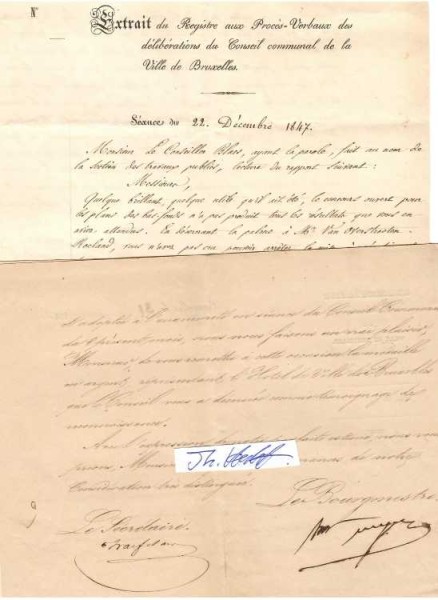 N°
Extrait du Registre aux Procès-Verbaux des
délibérations du Conseil communal de la
Ville de Bruxelles.
Séance du 22 Décembre 1847.
Monsieur le Conseiller Blaes, ayant la parole, fait au nom de
la Section des travaux publics, lecture du rapport suivant:
Messieurs,
Quelque brillant, quelque utile qu'ait été, le concours ouvert pour
les plans des bas-fonds n'a pas produit tous les résultats que vous en
aviez attendus. En décernant la palme à Mr Van Overstraeten
Roeland, vous n'avez pas cru pouvoir
et adoptée à l'unanimité en séance du Conseil Communal
du présent mois, nous nous faisons un vrai plaisir,
Monsieur, de vous remettre à cette occasion la médaille
en argent, représentant l'Hôtel de Ville de Bruxelles
que le Conseil vous a décernée comme témoignage de
reconnaissance.
Avec l'expression de nous vous
prions, Monsieur de notre
Considération très distinguée.
Le Bourgmestre
Le Secrétaire